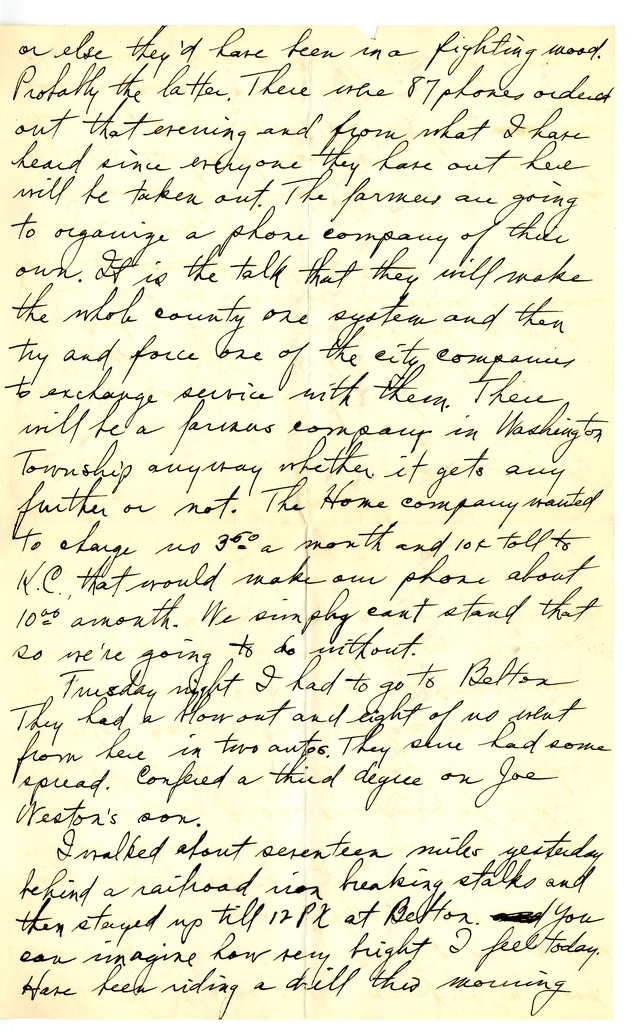 or else they'd have been in a fighting wood.
Probably the latter. There were 87 phones ordered
out that evening and from what I have
heard since everyone they have out here
will be taken out. The farmers are going
to organize a phone company of their
own. It is the talk that they will make
the whole county one system and then
try and force one of the city companies
to exchange service with them. There
will be a farmers company in Washington
Township anyway whether it gets any
further or not. The Home company wanted
to charge us 3 50 a month and 10¢ toll to
K.C., that would make our phone about
10 00 a month. We simply can't stand that
so we're going to do without.
Tuesday night I had to go to Belton
They had a blow out and eight of us went
from here in two autos. They sure had some
spread. Confered a third degree on Joe
Weston's son.
I walked about seventeen miles yesterday
behind a railroad iron breaking stalks and
then stayed up till 12 PM at Belton. You
can imagine how very bright I feel today.
Have been riding a drill this morning